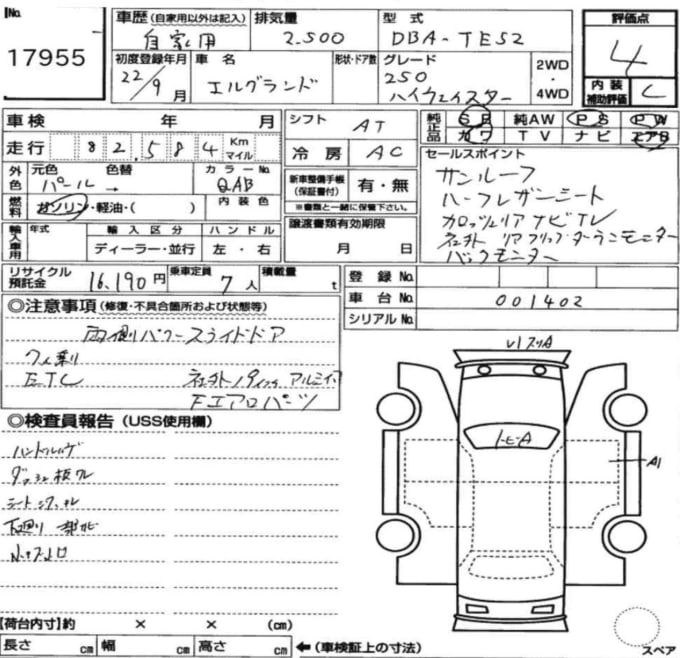 No.
17955
車歴 (自家用以外は記入)
自家用
排気量
2.500
型式
DBA-TE52
評価点
4
内装補助評価
C
初度登録年月
22/9月
車名
エルグランド
形状・ドア数
グレード
250
ハイウェイスター
2WD
・
4WD
車検 年 月
シフト
AT
純正品
純AW
PS
PW
カワ
TV
ナビ
エアB
走行
82,584
Km
マイル
冷房
AC
セールスポイント
サンルーフ
ハーフレザーシート
カロッツェリアナビTV
社外リアフリップダウンモニター
バックモニター
外色
元色
色替
カラーNo.
パール→
QAB
新車整備手帳
(保証書付)
有・無
※書類と一緒に保管下さい。
燃料
ガソリン・軽油・( )
内装色
譲渡書類有効期限
月 日
輸入車用
年式
輸入区分
ハンドル
ディーラー・並行
左・右
リサイクル預託金
16,190円
乗車定員
7人
積載量
t
登録No.
車台No.
001402
シリアルNo.
◎注意事項(修復・不具合箇所および状態等)
両側パワースライドドア
7人乗り
ETC
アルミ
Fエアロパーツ
◎検査員報告(USS使用欄)
ハンドル
下廻り
トヒA
A1
【荷台内寸】約 × × (cm)
長さ cm 幅 cm 高さ cm
←(車検証上の寸法)
スペア